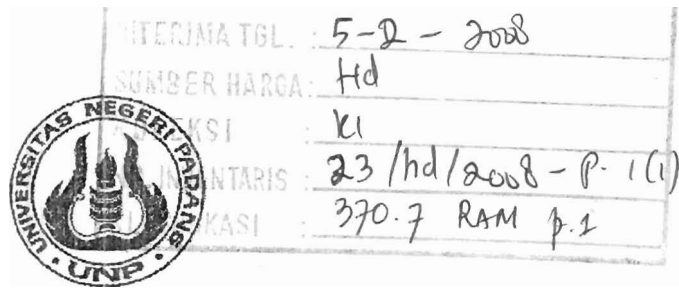 DITERIMA TGL. : 5-2-2008
SUMBER HARGA: Hd
KOLEKSI : KI
NO. INVENTARIS : 23/hd/2008-P.1(1)
KLASIFIKASI : 370.7 RAM p.1
UNIVERSITAS NEGERI PADANG
UNP